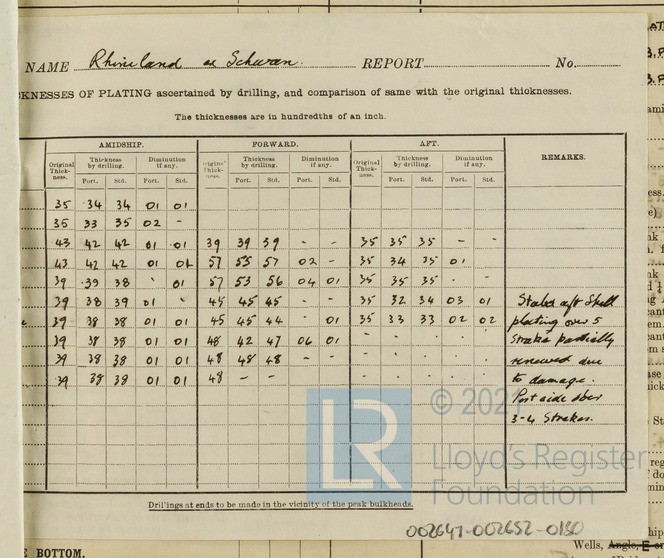 NAME Rhineland as Schwan. REPORT No.
KNESSES OF PLATING ascertained by drilling, and comparison of same with the original thicknesses.
The thicknesses are in hundredths of an inch.
AMIDSHIP. FORWARD. AFT. REMARKS.
Original Thick- ness. Thickness by drilling. Diminution if any. Thick- ness. Thickness by drilling. Diminution if any. Original Thick- ness. Thickness by drilling. Diminution if any.
Port. Std. Port. Std. Port. Std. Port. Std. Port. Std. Port. Std.
35 34 34 01 01
35 33 35 02 -
43 42 42 01 01 39 39 39 - - 35 35 35 - -
43 42 42 01 01 57 55 57 02 - 35 34 35 01
39 39 38 01 57 53 56 04 01 35 35 35
39 38 39 01 45 45 45 - - 35 32 34 03 01
39 38 38 01 01 45 45 44 01 35 33 33 02 02 plating over 5
39 38 38 01 01 48 42 47 06 01 Strakes partially
39 38 38 01 01 48 48 48 - - renewed due
39 38 38 01 01 48 - - to damage.
Port side over
3-4 Strakes.
© 2021
LR Lloyd's Register
Foundation
Drillings at ends to be made in the vicinity of the peak bulkheads.
002647-002652-0180
BOTTOM. Wells,